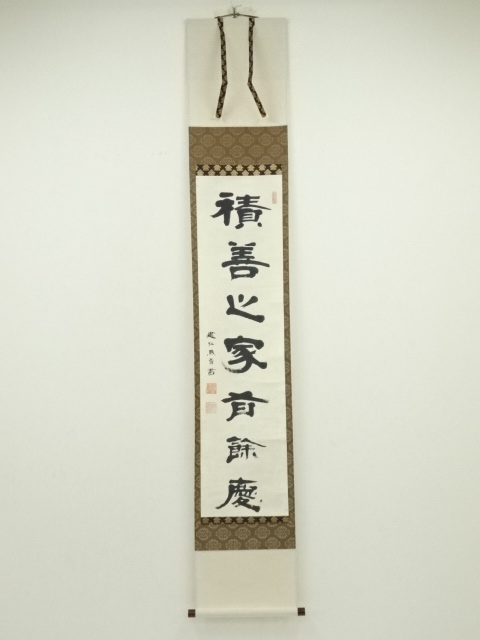 積善之家有餘慶